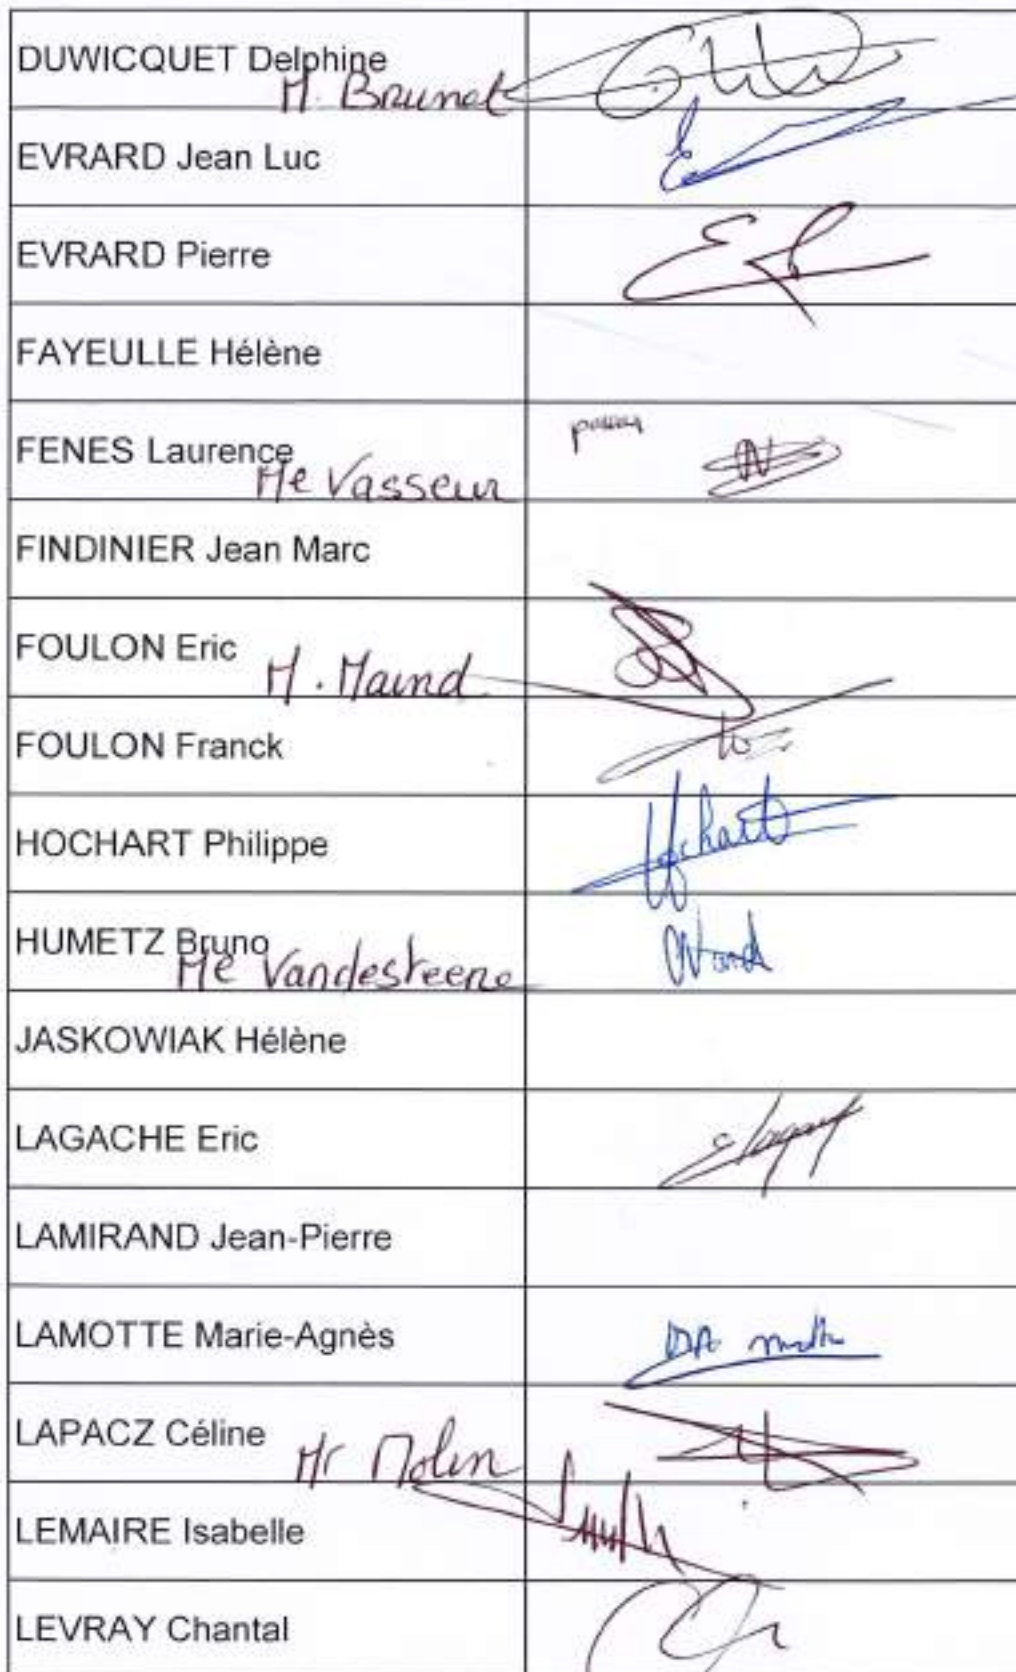 DUWICQUET Delphine
M. Brunet
EVRARD Jean Luc
EVRARD Pierre
FAYEULLE Hélène
FENES Laurence
Me Vasseur
FINDINIER Jean Marc
FOULON Eric
M.
FOULON Franck
HOCHART Philippe
Hochart
HUMETZ Bruno
Me Vandesteene
JASKOWIAK Hélène
LAGACHE Eric
LAMIRAND Jean-Pierre
LAMOTTE Marie-Agnès
LAPACZ Céline
Mr Molin
LEMAIRE Isabelle
LEVRAY Chantal